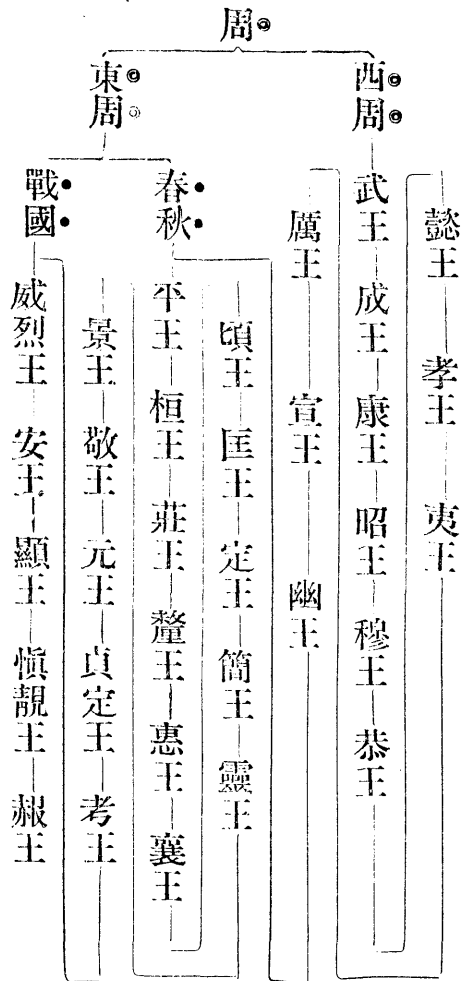 周
西周
武王 成王 康王 昭王 穆王 恭王
懿王 孝王 夷王
厲王 宣王 幽王
東周
春秋
平王 桓王 莊王 釐王 惠王 襄王
頃王 匡王 定王 簡王 靈王
景王 敬王 元王 貞定王 考王
戰國
威烈王 安王 顯王 愼靚王 赧王